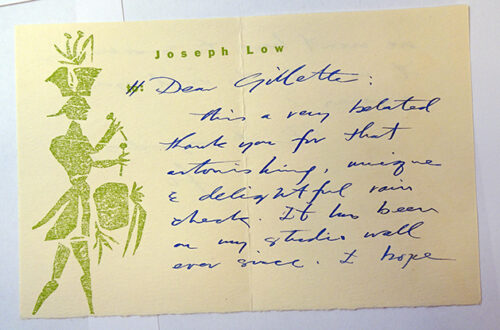 Joseph Low
Dear Gillette:
this a very belated
thank you for that
astonishing, unique
& delightful rain
check. It has been
on my studio wall
ever since. I hope